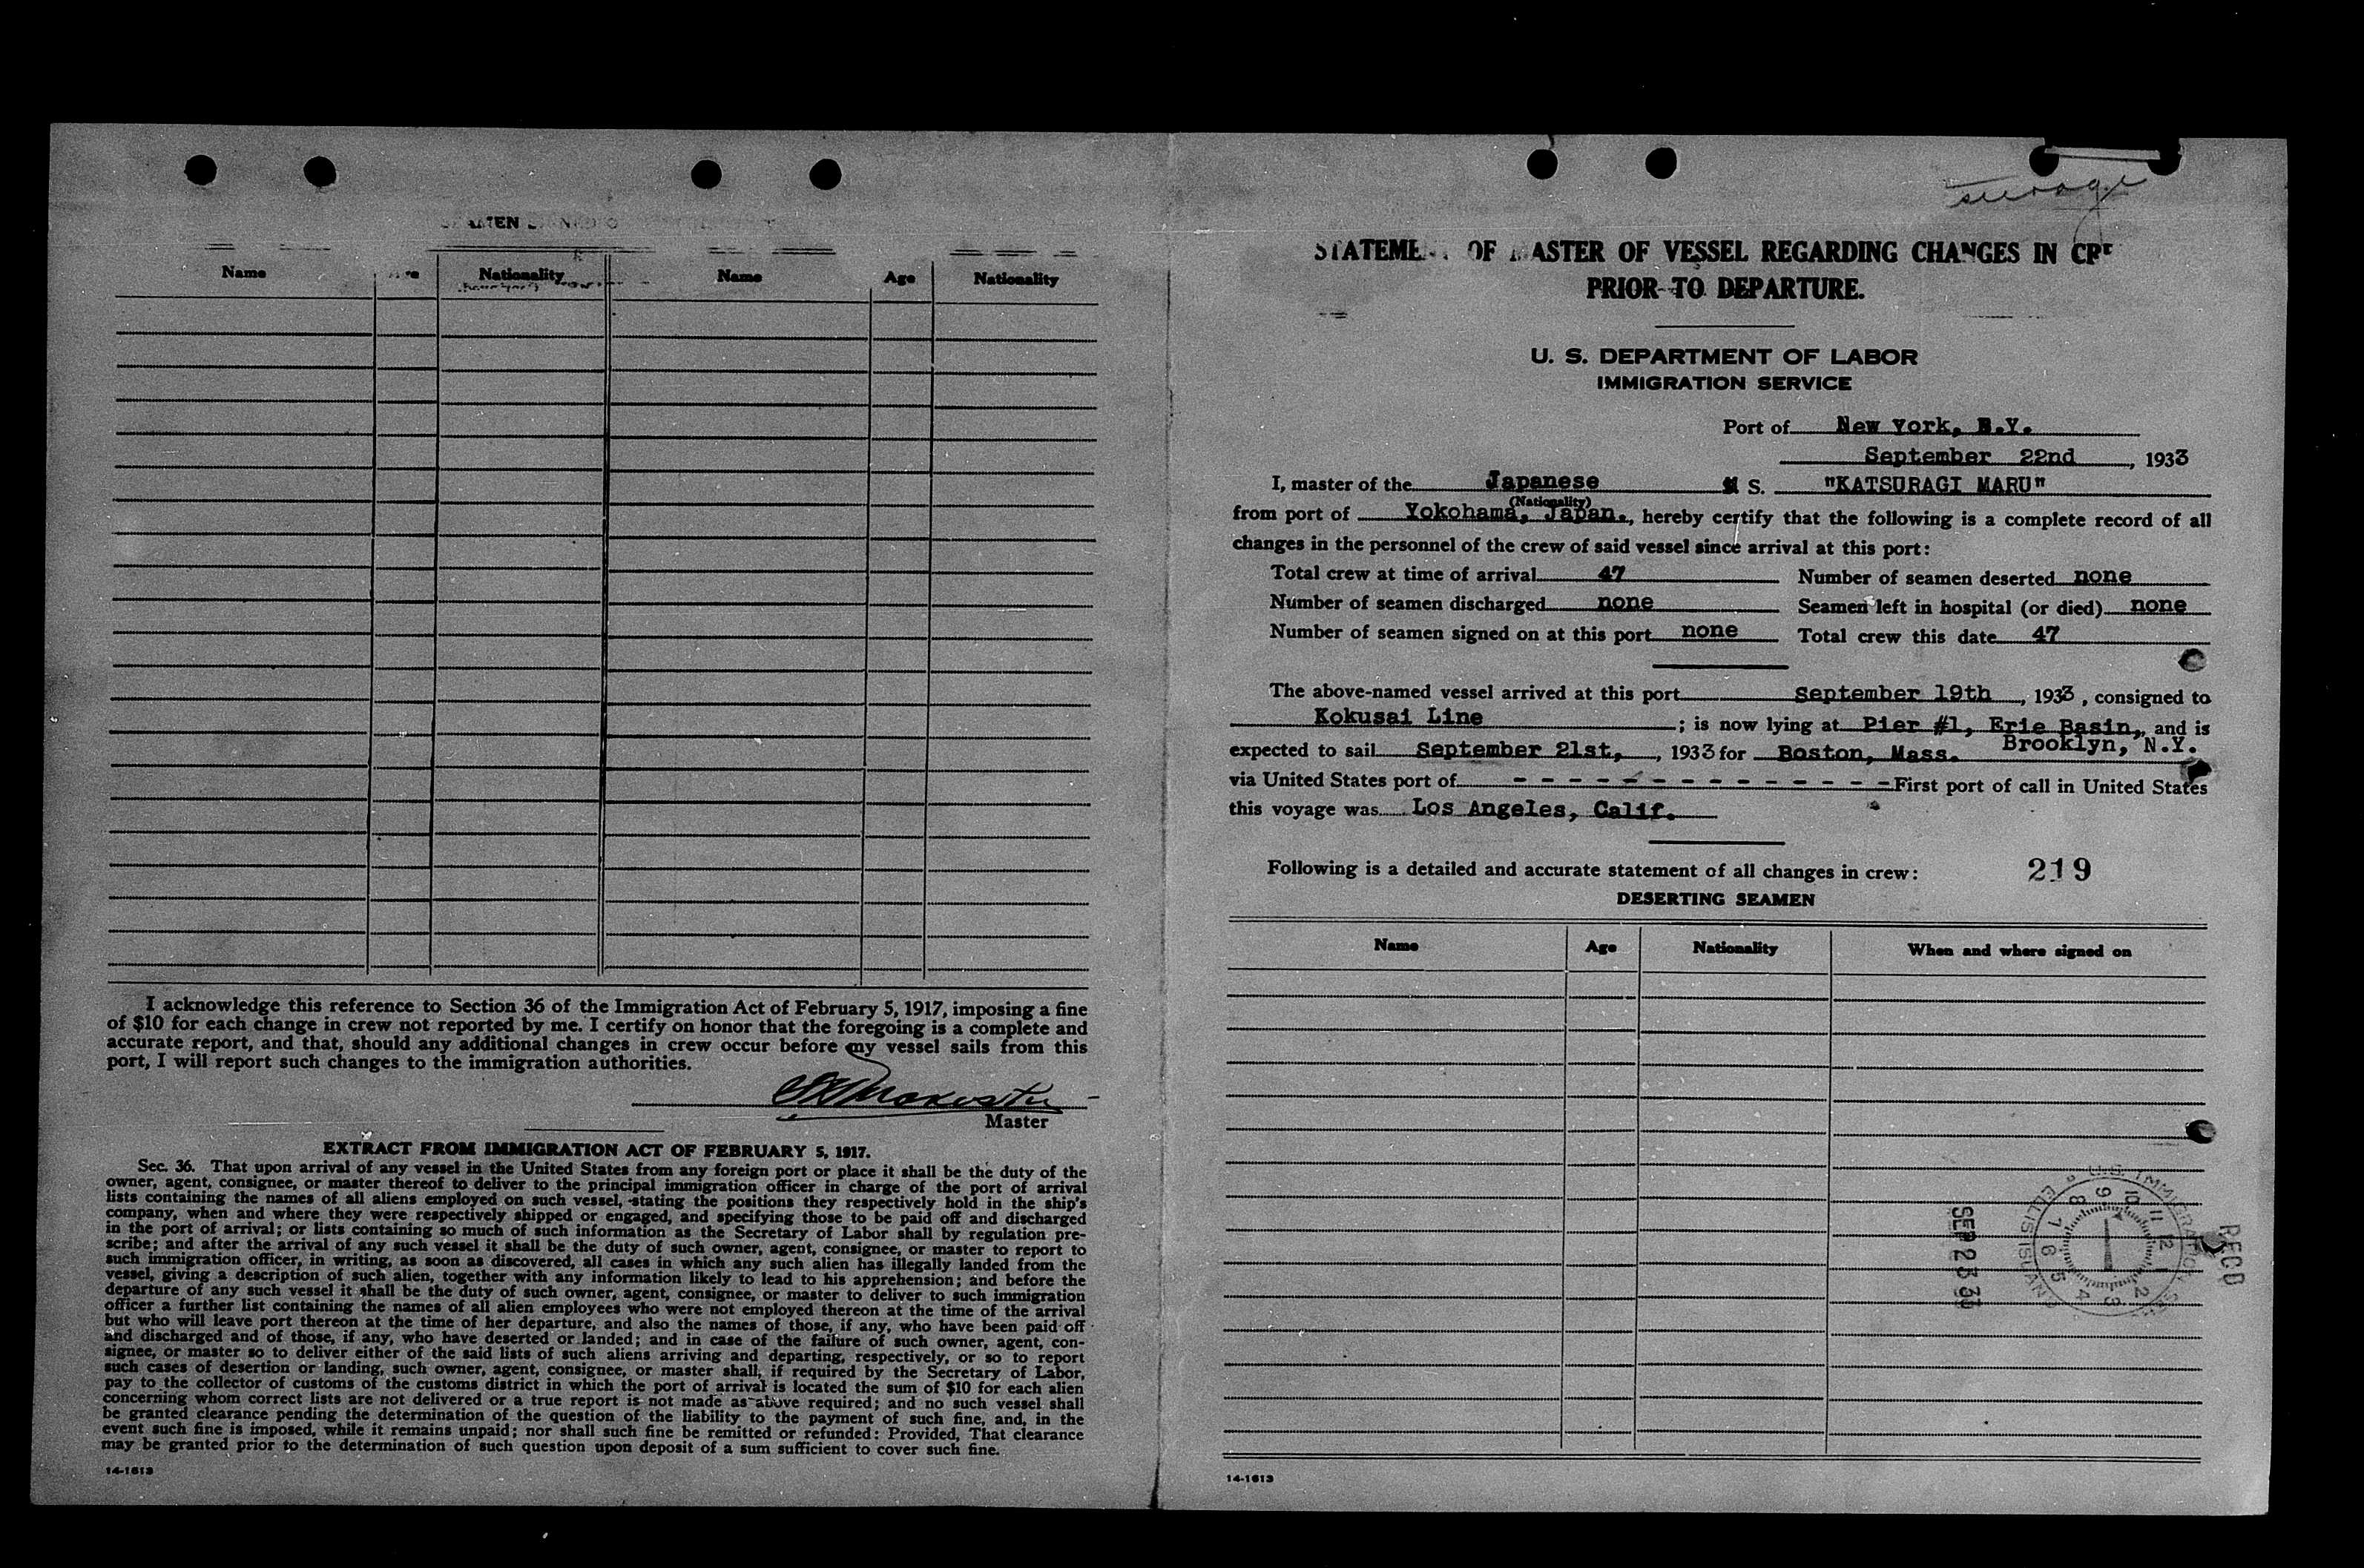 Name Age Nationality Name Age Nationality
I acknowledge this reference to Section 36 of the Immigration Act of February 5, 1917, imposing a fine
of $10 for each change in crew not reported by me. I certify on honor that the foregoing is a complete and
accurate report, and that, should any additional changes in crew occur before my vessel sails from this
port, I will report such changes to the immigration authorities.
Master
EXTRACT FROM IMMIGRATION ACT OF FEBRUARY 5, 1917.
Sec. 36. That upon arrival of any vessel in the United States from any foreign port or place it shall be the duty of the
owner, agent, consignee, or master thereof to deliver to the principal immigration officer in charge of the port of arrival
lists containing the names of all aliens employed on such vessel, stating the positions they respectively hold in the ship's
company, when and where they were respectively shipped or engaged, and specifying those to be paid off and discharged
in the port of arrival; or lists containing so much of such information as the Secretary of Labor shall by regulation pre-
scribe; and after the arrival of any such vessel it shall be the duty of such owner, agent, consignee, or master to report to
such immigration officer, in writing, as soon as discovered, all cases in which any such alien has illegally landed from the
vessel, giving a description of such alien, together with any information likely to lead to his apprehension; and before the
departure of any such vessel it shall be the duty of such owner, agent, consignee, or master to deliver to such immigration
officer a further list containing the names of all alien employees who were not employed thereon at the time of the arrival
but who will leave port thereon at the time of her departure, and also the names of those, if any, who have been paid off
and discharged and of those, if any, who have deserted or landed; and in case of the failure of such owner, agent, con-
signee, or master so to deliver either of the said lists of such aliens arriving and departing, respectively, or so to report
such cases of desertion or landing, such owner, agent, consignee, or master shall, if required by the Secretary of Labor,
pay to the collector of customs of the customs district in which the port of arrival is located the sum of $10 for each alien
concerning whom correct lists are not delivered or a true report is not made as above required; and no such vessel shall
be granted clearance pending the determination of the question of the liability to the payment of such fine, and, in the
event such fine is imposed, while it remains unpaid; nor shall such fine be remitted or refunded: Provided, That clearance
may be granted prior to the determination of such question upon deposit of a sum sufficient to cover such fine.
14-1613
STATEMENT OF MASTER OF VESSEL REGARDING CHANGES IN CRE
PRIOR TO DEPARTURE.
U. S. DEPARTMENT OF LABOR
IMMIGRATION SERVICE
Port of New York, N.Y.
September 22nd, 1933
I, master of the Japanese M S. "KATSURAGI MARU"
(Nationality)
from port of Yokohama, Japan., hereby certify that the following is a complete record of all
changes in the personnel of the crew of said vessel since arrival at this port:
Total crew at time of arrival 47 Number of seamen deserted none
Number of seamen discharged none Seamen left in hospital (or died) none
Number of seamen signed on at this port none Total crew this date 47
The above-named vessel arrived at this port September 19th, 1933, consigned to
Kokusai Line; is now lying at Pier #1, Erie Basin, and is
Brooklyn, N.Y.
expected to sail September 21st, , 1933 for Boston, Mass.
via United States port of - - - - - - - - - - - - - - First port of call in United States
this voyage was Los Angeles, Calif.
Following is a detailed and accurate statement of all changes in crew: 219
DESERTING SEAMEN
Name Age Nationality When and where signed on
U.S. IMMIGRATION
ELLIS ISLAND
9 10 11 12 1 2 3 4 5 6 7 8
SEP 23 33
RECD
14-1613